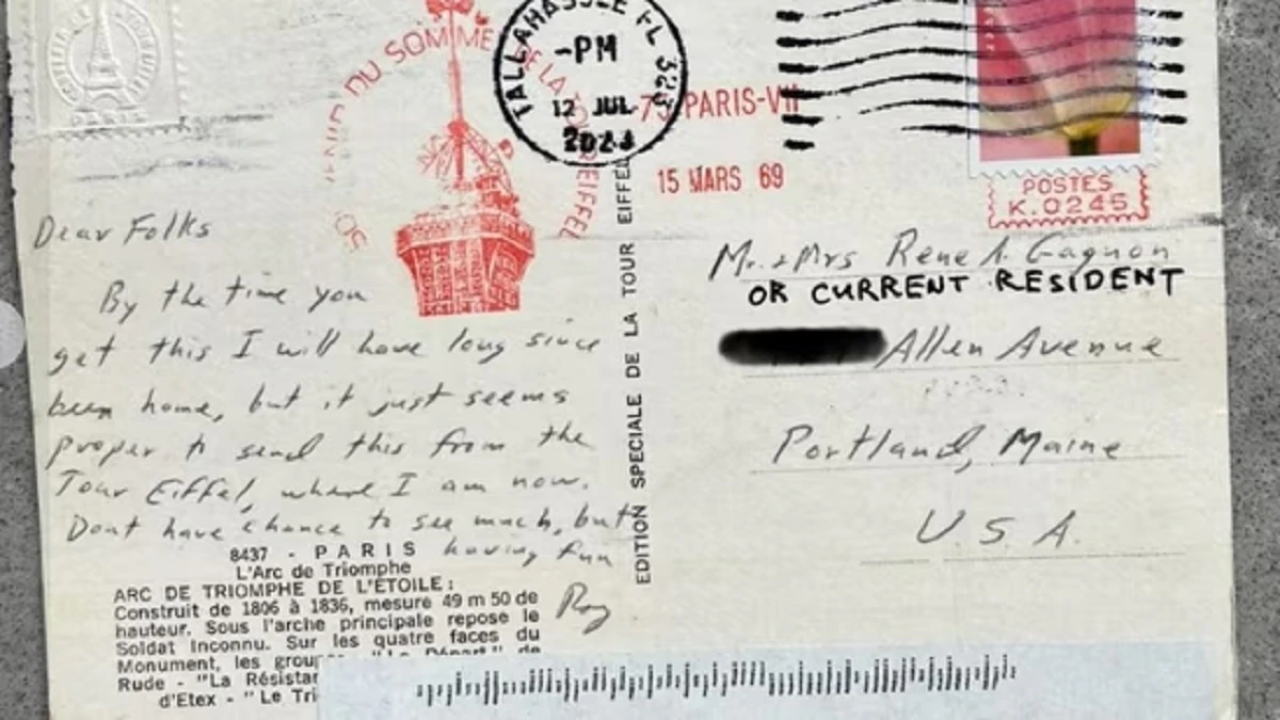 PARIS
DU SOMMET DE LA TOUR EIFFEL
TALLAHASSEE FL 323
-PM
12 JUL
2023
75 PARIS-VII
15 MARS 69
POSTES
K.0245
Dear Folks
By the time you
get this I will have long since
been home, but it just seems
proper to send this from the
Tour Eiffel, where I am now.
Dont have chance to see much, but
having fun
Roy
EDITION SPECIALE DE LA TOUR EIFFEL
Mr. & Mrs Rene A. Gagnon
OR CURRENT RESIDENT
Allen Avenue
Portland, Maine
U.S.A.
8437 - PARIS
L'Arc de Triomphe
ARC DE TRIOMPHE DE L'ÉTOILE :
Construit de 1806 à 1836, mesure 49 m 50 de
hauteur. Sous l'arche principale repose le
Soldat Inconnu. Sur les quatre faces du
Monument, les "Le Départ" de
Rude - "La
d'Etex - "Le